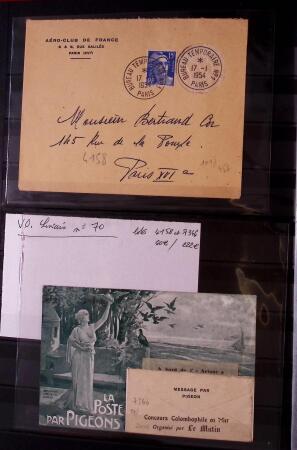 AÉRO-CLUB DE FRANCE
6 & 8, RUE GALILÉE
PARIS (XVIe)
BUREAU TEMPORAIRE
17 -1
1954
PARIS
BUREAU TEMPORAIRE N°
17 -1
1954
PARIS
Monsieur Bertrand
145 Rue de la Pompe
Paris XVI e
4158
V.O. n° 70
lots 4158 et 7346
LA
POSTE
PAR PIGEONS
MESSAGE PAR
PIGEON
Concours Colombophile en Mer
Organisé par Le Matin